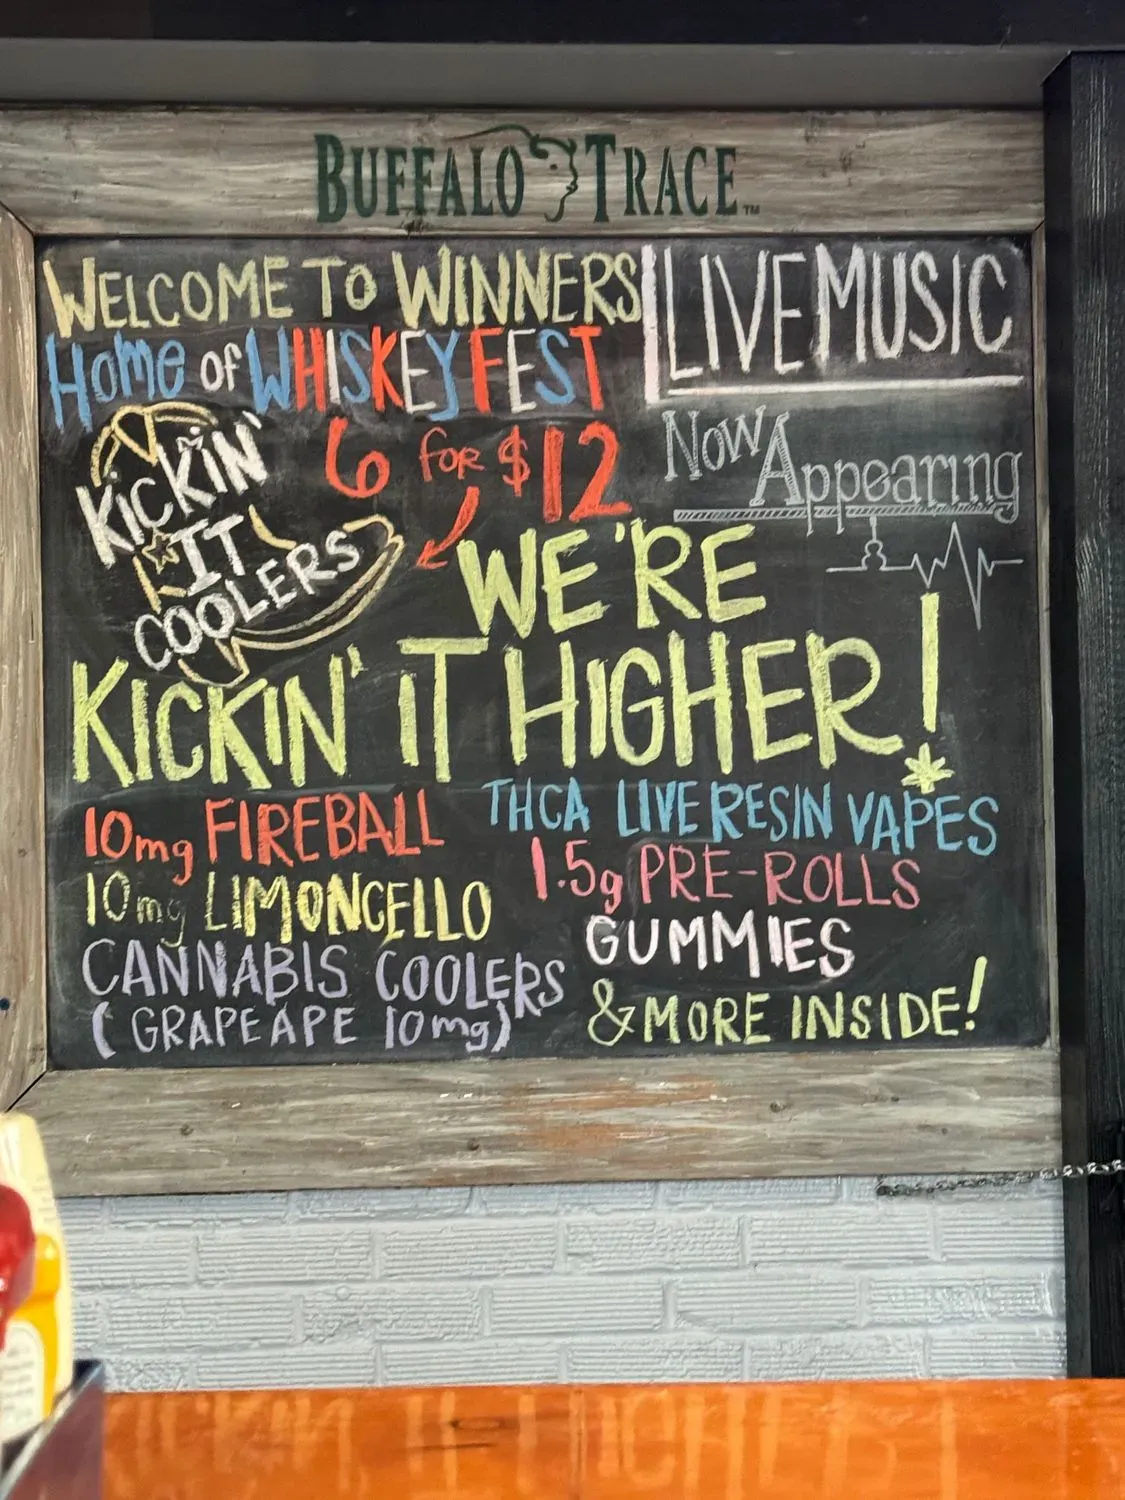 BUFFALO TRACE™
WELCOME TO WINNERS
HOME OF WHISKEY FEST
KICKIN'
IT
COOLERS
6 FOR $12
LIVE MUSIC
NOW APPEARING
WE'RE
KICKIN' IT HIGHER!
10mg FIREBALL
10mg LIMONCELLO
CANNABIS COOLERS
(GRAPE APE 10mg)
THCA LIVE RESIN VAPES
1.5g PRE-ROLLS
GUMMIES
& MORE INSIDE!